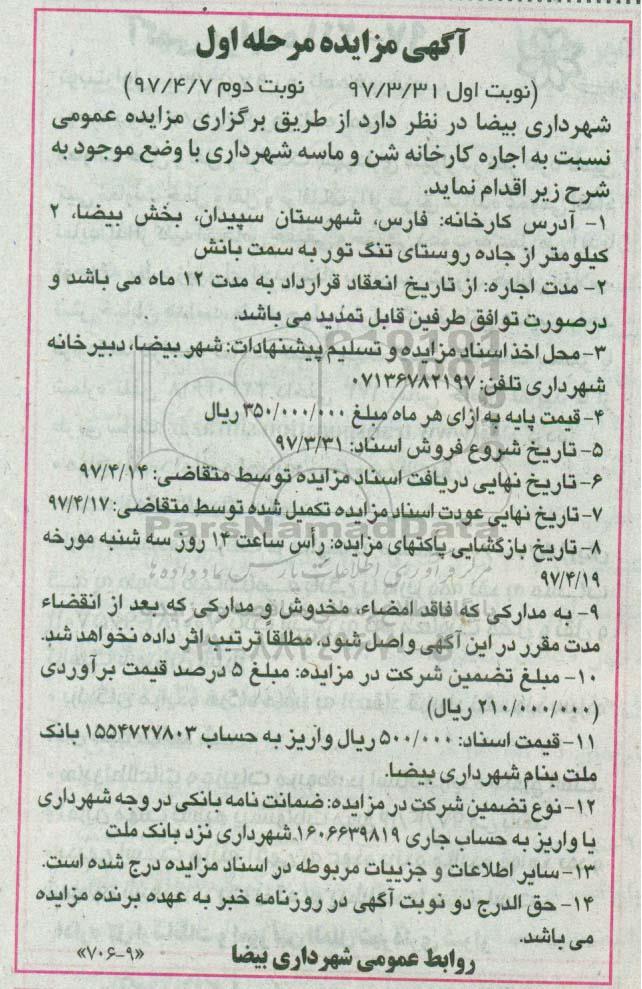 آگهی مزایده مرحله اول
(نوبت اول ۹۷/۳/۳۱ نوبت دوم ۹۷/۴/۷)
شهرداری بیضا در نظر دارد از طریق برگزاری مزایده عمومی
نسبت به اجاره کارخانه شن و ماسه شهرداری با وضع موجود به
شرح زیر اقدام نماید.
۱- آدرس کارخانه: فارس، شهرستان سپیدان، بخش بیضا، ۲
کیلومتر از جاده روستای تنگ تور به سمت بانش
۲- مدت اجاره: از تاریخ انعقاد قرارداد به مدت ۱۲ ماه می باشد و
درصورت توافق طرفین قابل تمدید می باشد.
۳- محل اخذ اسناد مزایده و تسلیم پیشنهادات: شهر بیضا، دبیرخانه
شهرداری تلفن: ۰۷۱۳۶۷۸۲۱۹۷
۴- قیمت پایه به ازای هر ماه مبلغ ۳۵۰/۰۰۰/۰۰۰ ریال
۵- تاریخ شروع فروش اسناد: ۹۷/۳/۳۱
۶- تاریخ نهایی دریافت اسناد مزایده توسط متقاضی: ۹۷/۴/۱۴
۷- تاریخ نهایی عودت اسناد مزایده تکمیل شده توسط متقاضی: ۹۷/۴/۱۷
ParsNamadData
۸- تاریخ بازگشایی پاکتهای مزایده: رأس ساعت ۱۴ روز سه شنبه مورخه
۹۷/۴/۱۹
۹- به مدارکی که فاقد امضاء، مخدوش و مدارکی که بعد از انقضاء
مدت مقرر در این آگهی واصل شود، مطلقاً ترتیب اثر داده نخواهد شد.
۱۰- مبلغ تضمین شرکت در مزایده: مبلغ ۵ درصد قیمت برآوردی
(۲۱۰/۰۰۰/۰۰۰ ریال)
۱۱- قیمت اسناد: ۵۰۰/۰۰۰ ریال واریز به حساب ۱۵۵۴۷۲۷۸۰۳ بانک
ملت بنام شهرداری بیضا.
۱۲- نوع تضمین شرکت در مزایده: ضمانت نامه بانکی در وجه شهرداری
یا واریز به حساب جاری ۱۶۰۶۶۳۹۸۱۹ شهرداری نزد بانک ملت
۱۳- سایر اطلاعات و جزییات مربوطه در اسناد مزایده درج شده است.
۱۴- حق الدرج دو نوبت آگهی در روزنامه خبر به عهده برنده مزایده
می باشد.
روابط عمومی شهرداری بیضا «۷۰۶-۹»